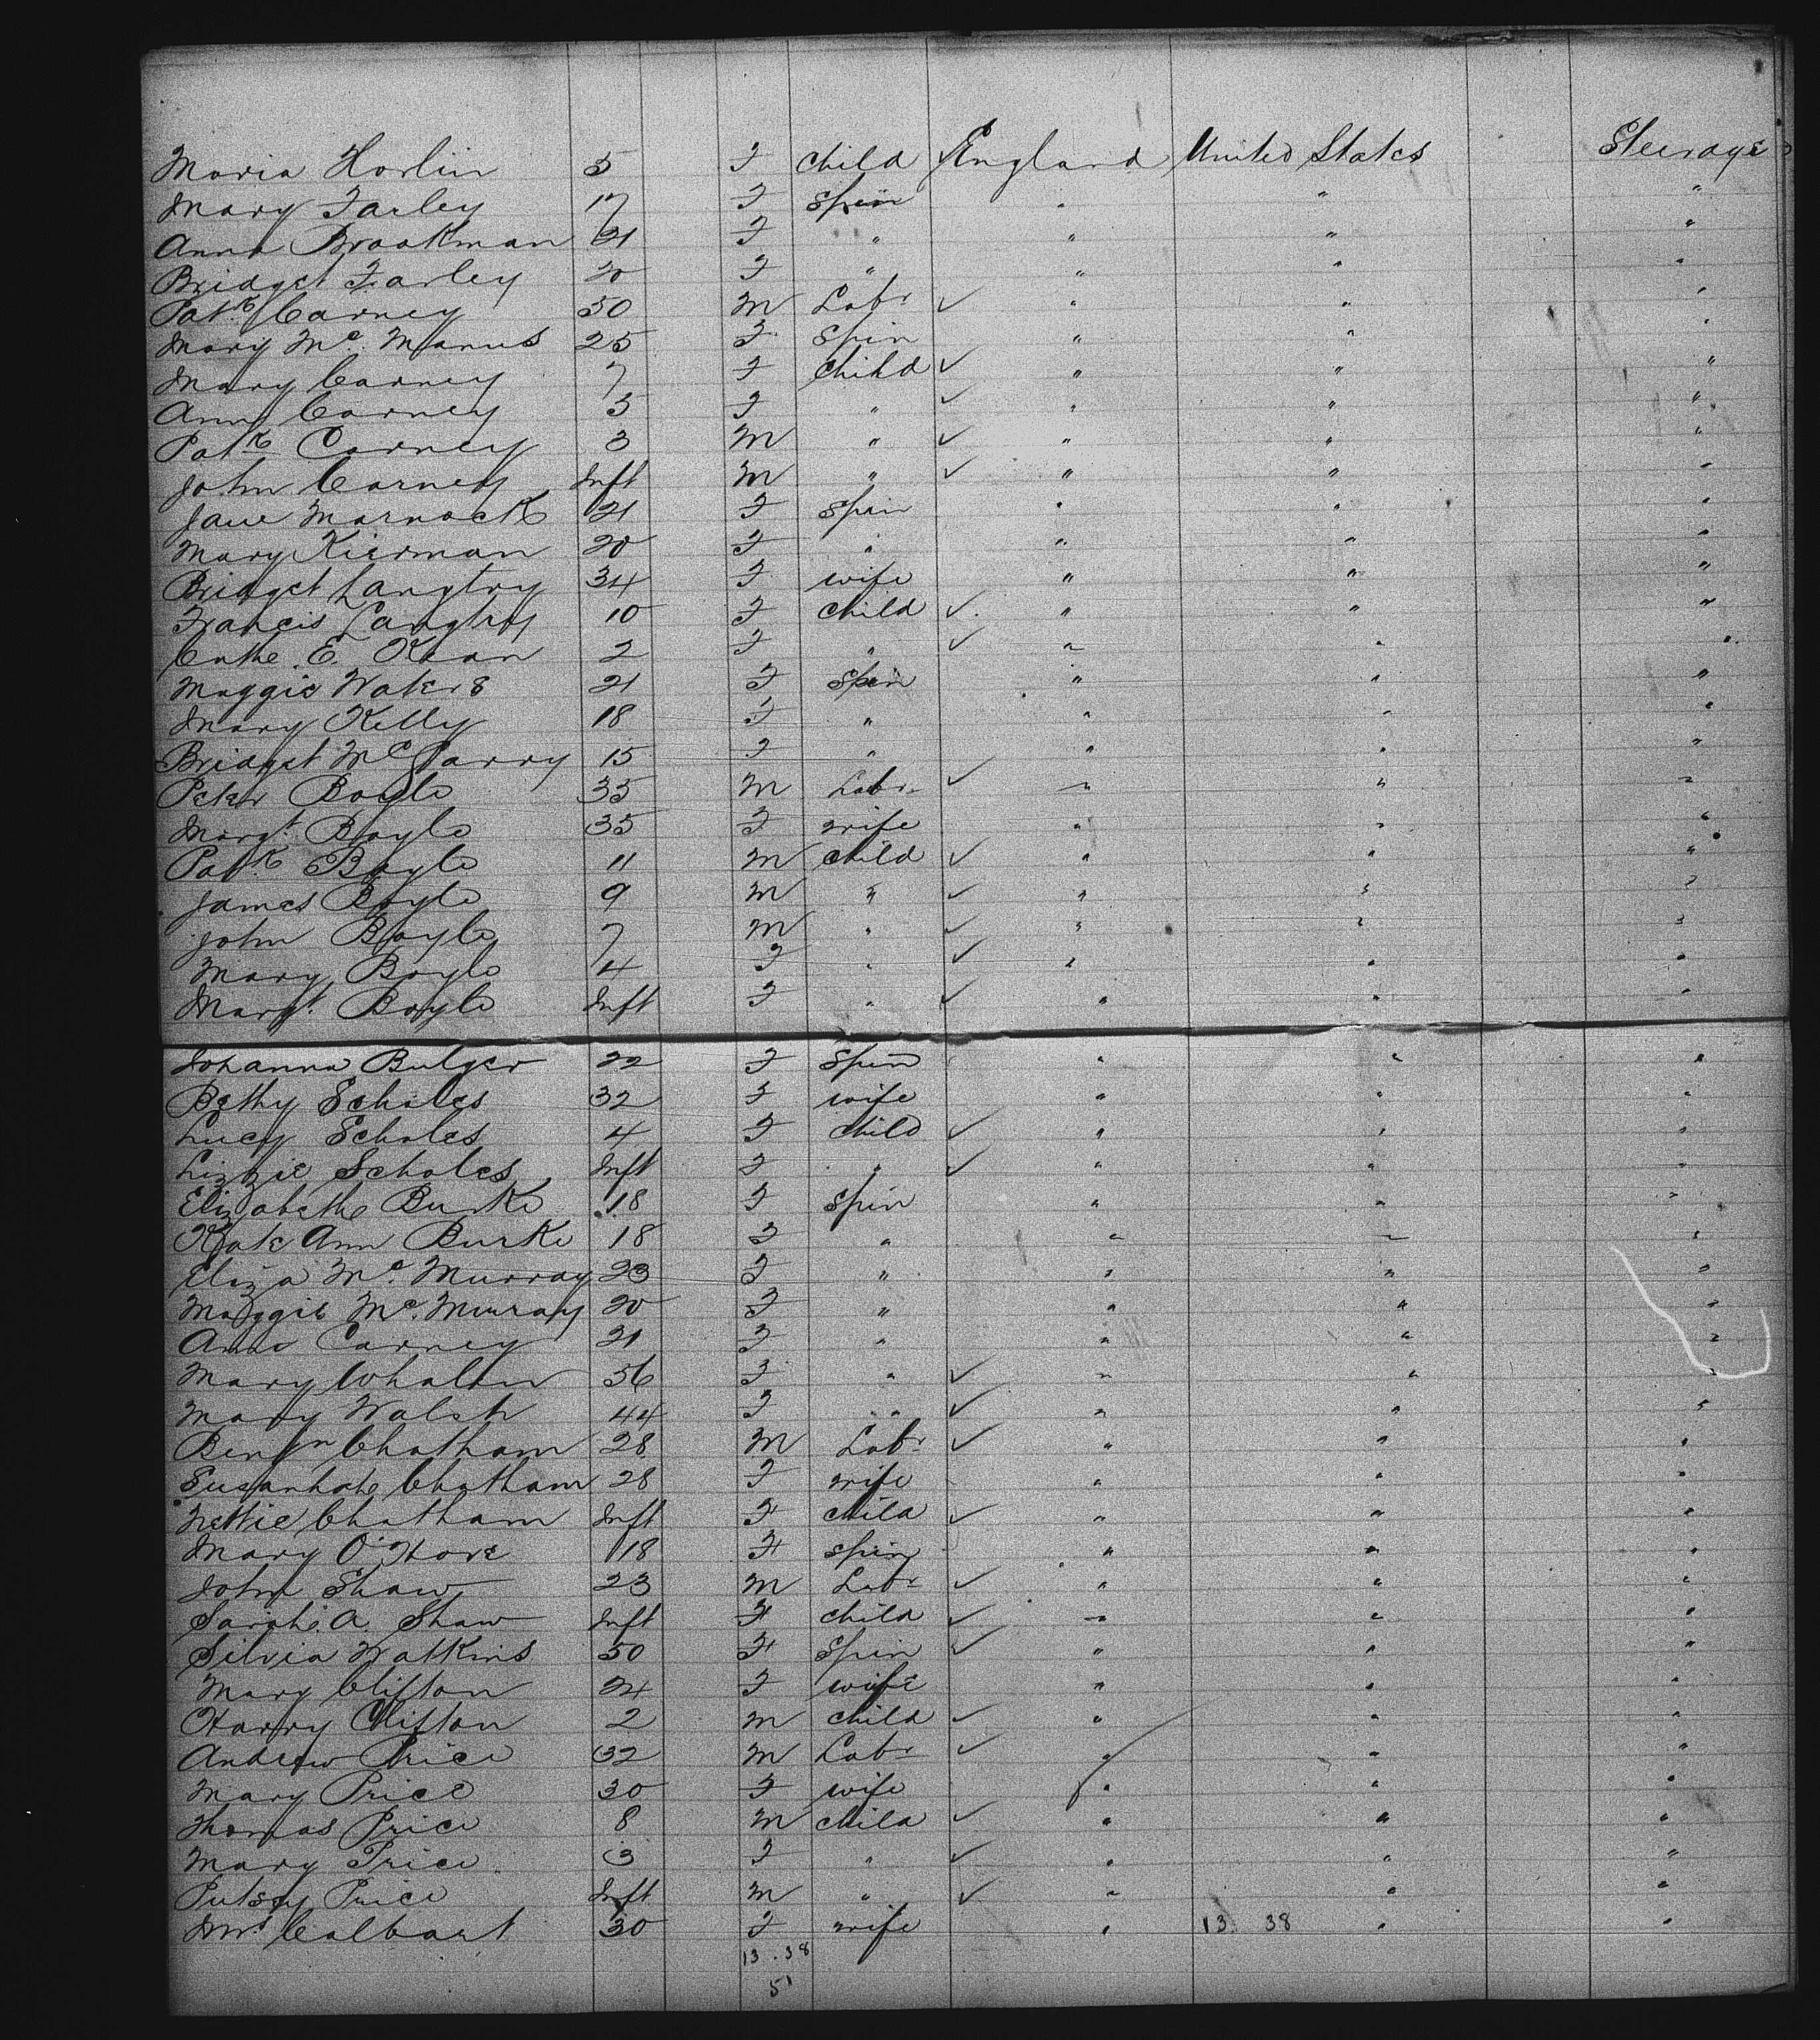 Maria Horlin 5 F Child England United States Steerage
Mary Farley 17 F Spin " " "
Anna Brookman 21 F " " " "
Bridget Farley 20 F " " " "
Patk Carney 50 M Labr ✓ " " "
Mary Mc Manus 25 F Spin " " "
Mary Carney 7 F Child ✓ " " "
Ann Carney 5 F " ✓ " " "
Patk Carney 3 M " ✓ " " "
John Carney Inft M " ✓ " " "
Jane Marnock 21 F Spin " " "
Mary Kierman 20 F " " " "
Bridget Langtry 34 F wife " " "
Francis Langtry 10 F child ✓ " " "
Cathe E. Kean 2 F " ✓ " " "
Maggie Waters 21 F Spin " " "
Mary Kelly 18 F " " " "
Bridget Mc Parry 15 F " " " "
Peter Boyle 35 M Labr ✓ " " "
Margt Boyle 35 F wife " " "
Patk Boyle 11 M child ✓ " " "
James Boyle 9 M " ✓ " " "
John Boyle 7 M " ✓ " " "
Mary Boyle 4 F " ✓ " " "
Margt Boyle Inft F " ✓ " " "
Johanna Bulger 22 F Spin " " "
Betty Scholes 32 F wife " " "
Lucy Scholes 4 F child ✓ " " "
Lizzie Scholes Inft F " ✓ " " "
Elizabeth Burke 18 F Spin " " "
Kate Ann Burke 18 F " " " "
Eliza Mc Murray 23 F " " " "
Maggie Mc Murray 20 F " " " "
Ann Carney 21 F " " " "
Mary Whalen 56 F " ✓ " " "
Mary Walsh 44 F " ✓ " " "
Benjn Chatham 28 M Labr ✓ " " "
Susannah Chatham 28 F wife " " "
Nettie Chatham Inft F child ✓ " " "
Mary O'Hare 18 F spin " " "
John Shaw 23 M Labr ✓ " " "
Sarah A. Shaw Inft F child ✓ " " "
Silvia Watkins 50 F Spin ✓ " " "
Mary Clifton 24 F wife " " "
Harry Clifton 2 M child ✓ " " "
Andrew Price 32 M Labr ✓ " " "
Mary Price 30 F wife " " "
Thomas Price 8 M child ✓ " " "
Mary Price 3 F " ✓ " " "
Putsey Price Inft M " ✓ " " "
Mrs Calbart 30 F wife " 13 38 " "
13.38
51